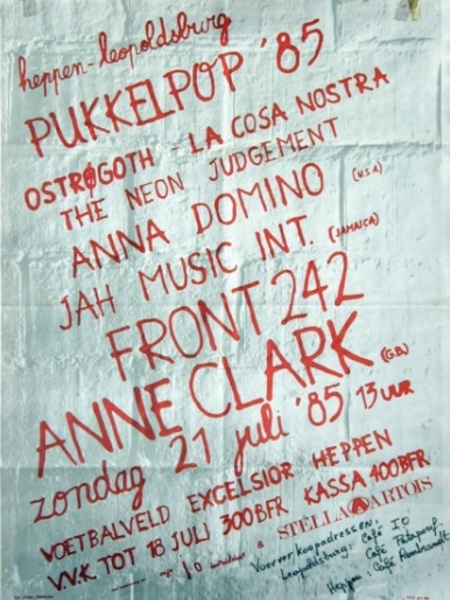 heppen-leopoldsburg
PUKKELPOP '85
OSTRØGOTH - LA COSA NOSTRA
THE NEON JUDGEMENT
ANNA DOMINO (U.S.A)
JAH MUSIC INT. (JAMAICA)
FRONT 242
ANNE CLARK (G.B.)
zondag 21 juli '85 13 UUR
VOETBALVELD EXCELSIOR HEPPEN
V.V.K TOT 18 JULI 300BFR KASSA 400BFR
& STELLA ARTOIS
Voorverkoopadressen.
Leopoldsburg: Café IO
Café
Heppen: Café Rembrandt